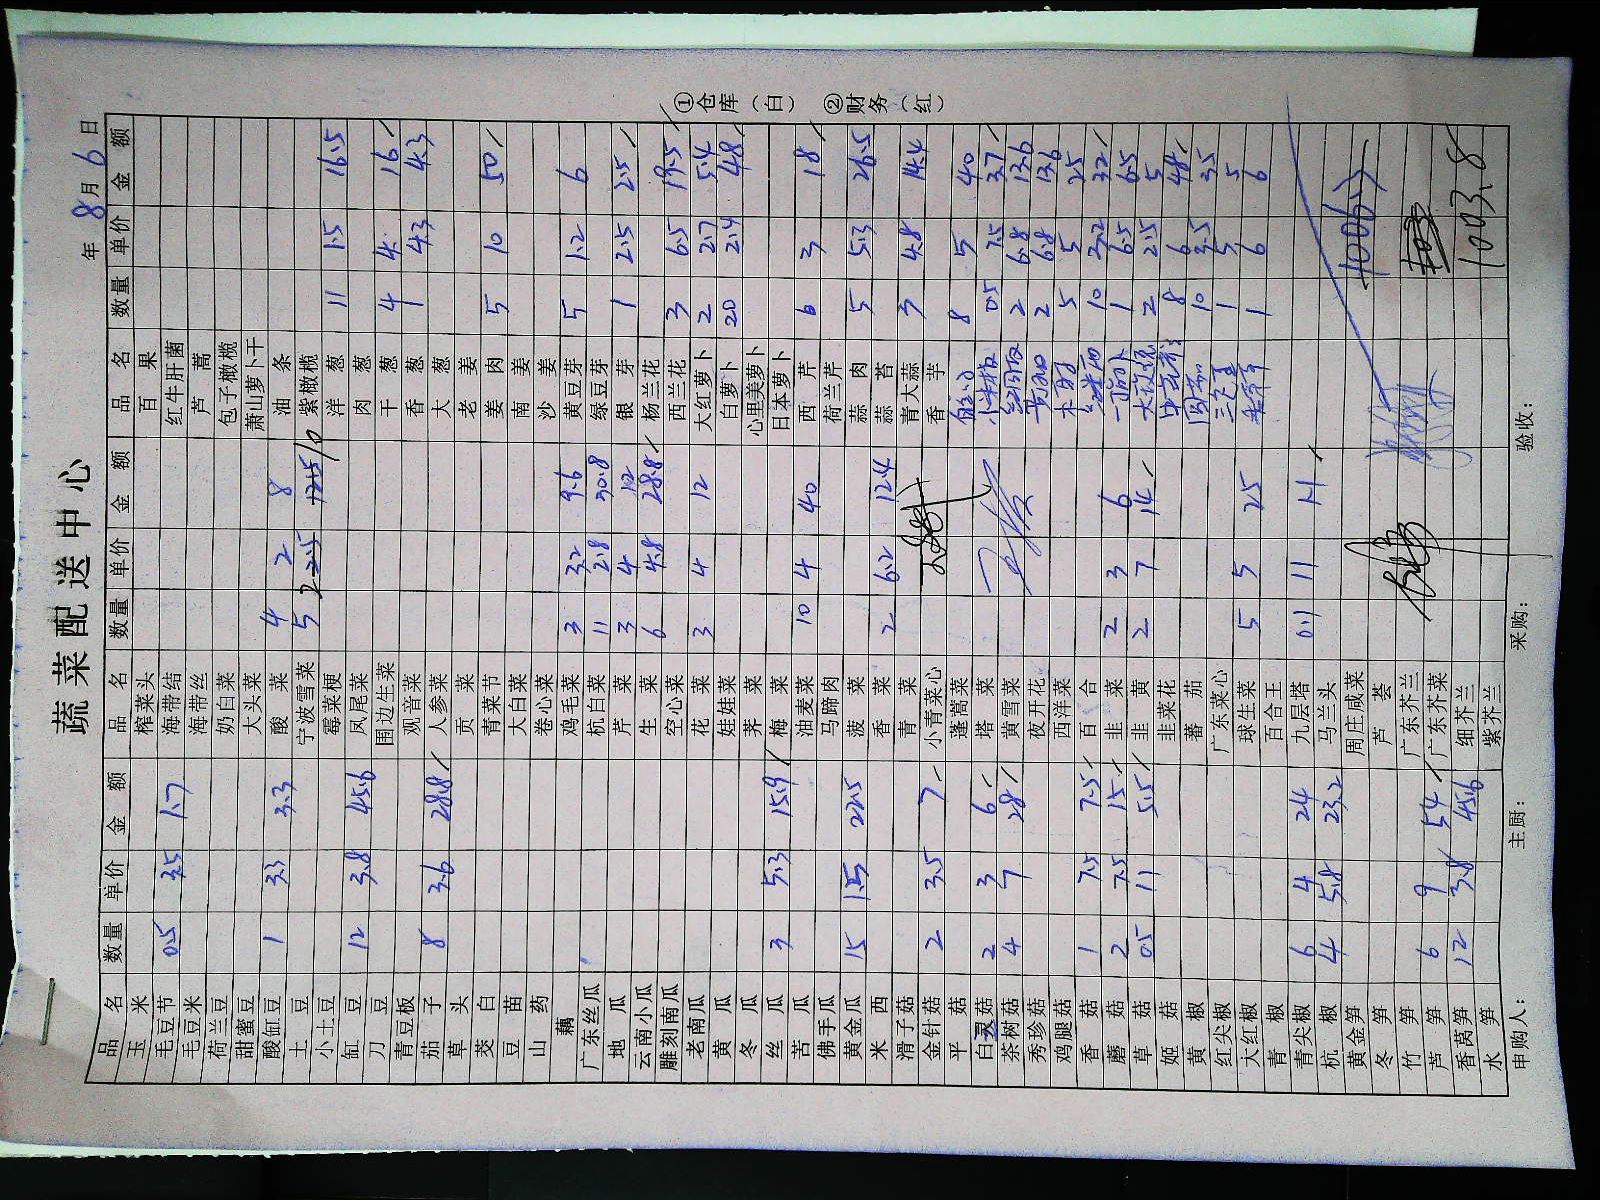 蔬菜配送中心
年 8月 6日
品名 数量 单价 金额 品名 数量 单价 金额 品名 数量 单价 金额
玉米 榨菜头 百果
毛豆节 0.5 3.5 1.7 海带结 红牛肝菌
毛豆米 海带丝 芦蒿
荷兰豆 奶白菜 包子橄榄
甜蜜豆 大头菜 萧山萝卜干
酸缸豆 1 3.3 3.3 酸菜 4 2 8 油条
土豆 宁波雪菜 5 2 2.5 12.5 10 紫橄榄
小土豆 霉菜梗 洋葱 11 1.5 16.5
缸豆 12 3.8 45.6 凤尾菜 肉葱
刀豆 围边生菜 干葱 4 4 16
青豆板 观音菜 香葱 1 4.3 4.3
茄子 8 3.6 28.8 人参菜 大葱
草头 贡菜 老姜
茭白 青菜节 姜肉 5 10 50
豆苗 大白菜 南姜
山药 卷心菜 沙姜
藕 鸡毛菜 3 3.2 9.6 黄豆芽 5 1.2 6
广东丝瓜 杭白菜 11 2.8 30.8 绿豆芽
地瓜 芹菜 3 4 12 银芽 1 2.5 2.5
云南小瓜 生菜 6 4.8 28.8 杨兰花
雕刻南瓜 空心菜 西兰花 3 6.5 19.5
老南瓜 花菜 3 4 12 大红萝卜 2 2.7 5.4
黄瓜 娃娃菜 白萝卜 20 2.4 48
冬瓜 荠菜 心里美萝卜
丝瓜 3 5.3 15.9 梅菜 日本萝卜
苦瓜 油麦菜 10 4 40 西芹 6 3 18
佛手瓜 马蹄肉 荷兰芹
黄金瓜 15 1.5 22.5 菠菜 蒜肉 5 5.3 26.5
米西 香菜 2 6.2 12.4 蒜苔
滑子菇 青菜 青大蒜 3 4.8 14.4
金针菇 2 3.5 7 小青菜心 香芋
平菇 蓬蒿菜 8 5 40
白灵菇 2 3 6 塔菜 0.5 7.5 3.7
茶树菇 4 7 28 黄雪菜 2 6.8 13.6
秀珍菇 夜开花 2 6.8 13.6
鸡腿菇 西洋菜 5 5 25
香菇 1 7.5 7.5 百合 10 3.2 32
蘑菇 2 7.5 15 韭菜 2 3 6 1 6.5 6.5
草菇 0.5 11 5.5 韭黄 2 7 14 2 2.5 5
姬菇 韭菜花 8 6 48
黄椒 蕃茄 10 3.5 35
红尖椒 广东菜心 1 5 5
大红椒 球生菜 5 5 25 1 6 6
青椒 百合王
青尖椒 6 4 24 九层塔 0.1 11 1.1
杭椒 4 5.8 23.2 马兰头
黄金笋 周庄咸菜
冬笋 芦荟
竹笋 广东芥兰
芦笋 6 9 54 广东芥菜
香莴笋 12 3.8 45.6 细芥兰 1003.8
水笋 紫芥兰
申购人： 主厨： 采购： 验收：
①仓库（白） ②财务（红）